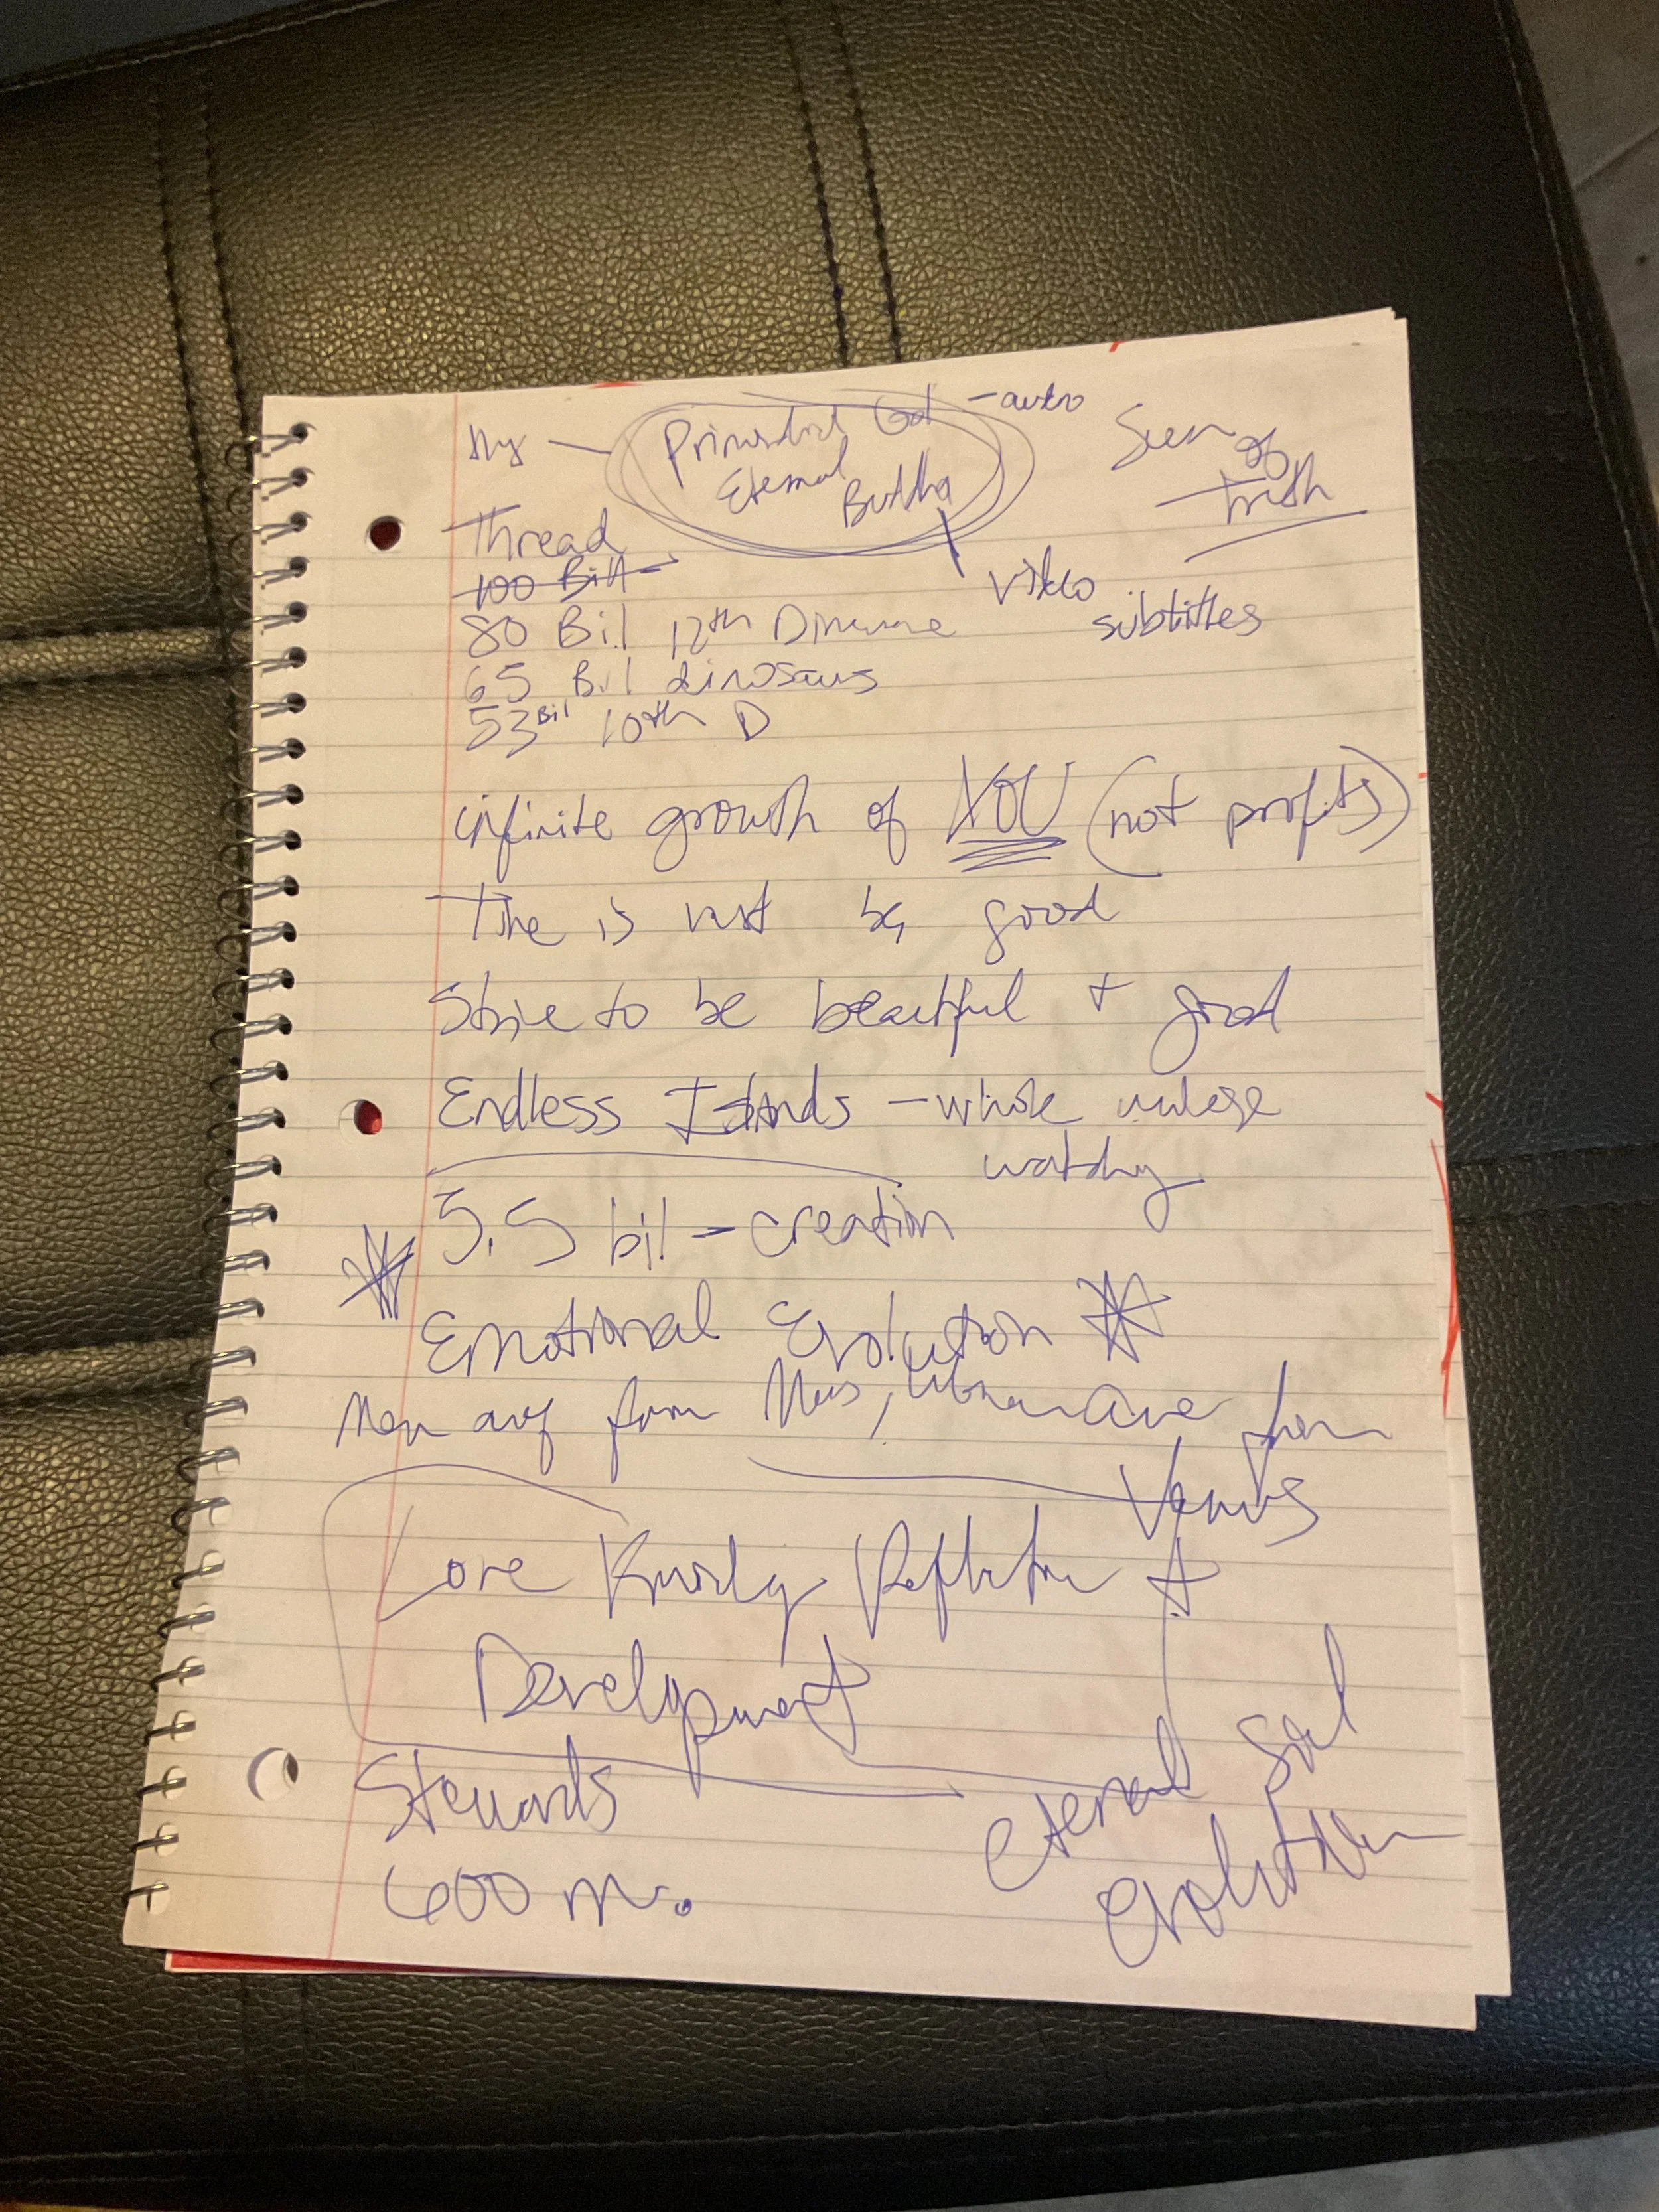 Primordial God - auto
Eternal
Buddha
of
Truth
Thread
100 Bil
video
subtitles
80 Bil 12th
65 Bil dinosaurs
53 Bil 10th D
infinite growth of YOU (not profits)
Time is vast be good
Strive to be beautiful + good
Endless Islands - whole universe
watching
5.5 bil - creation
Emotional Evolution
Men are from Mars, Woman are from
Venus
Love Knowledge Reflection +
Development
Eternal Soul
Evolution
Stewards
600 m.